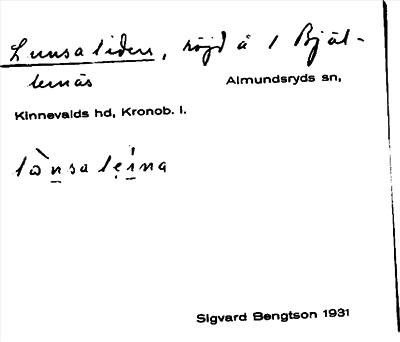 Lunsaliden, röjd å 1 Bjäl-
lernäs Almundsryds sn,
Kinnevalds hd, Kronob. l.
Sigvard Bengtson 1931